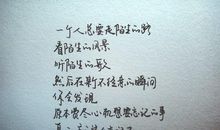 一个人总要走陌生的路
看陌生的风景
听陌生的歌
然后在某个不经意的瞬间
你会发现
原本费尽心机想要忘记的事